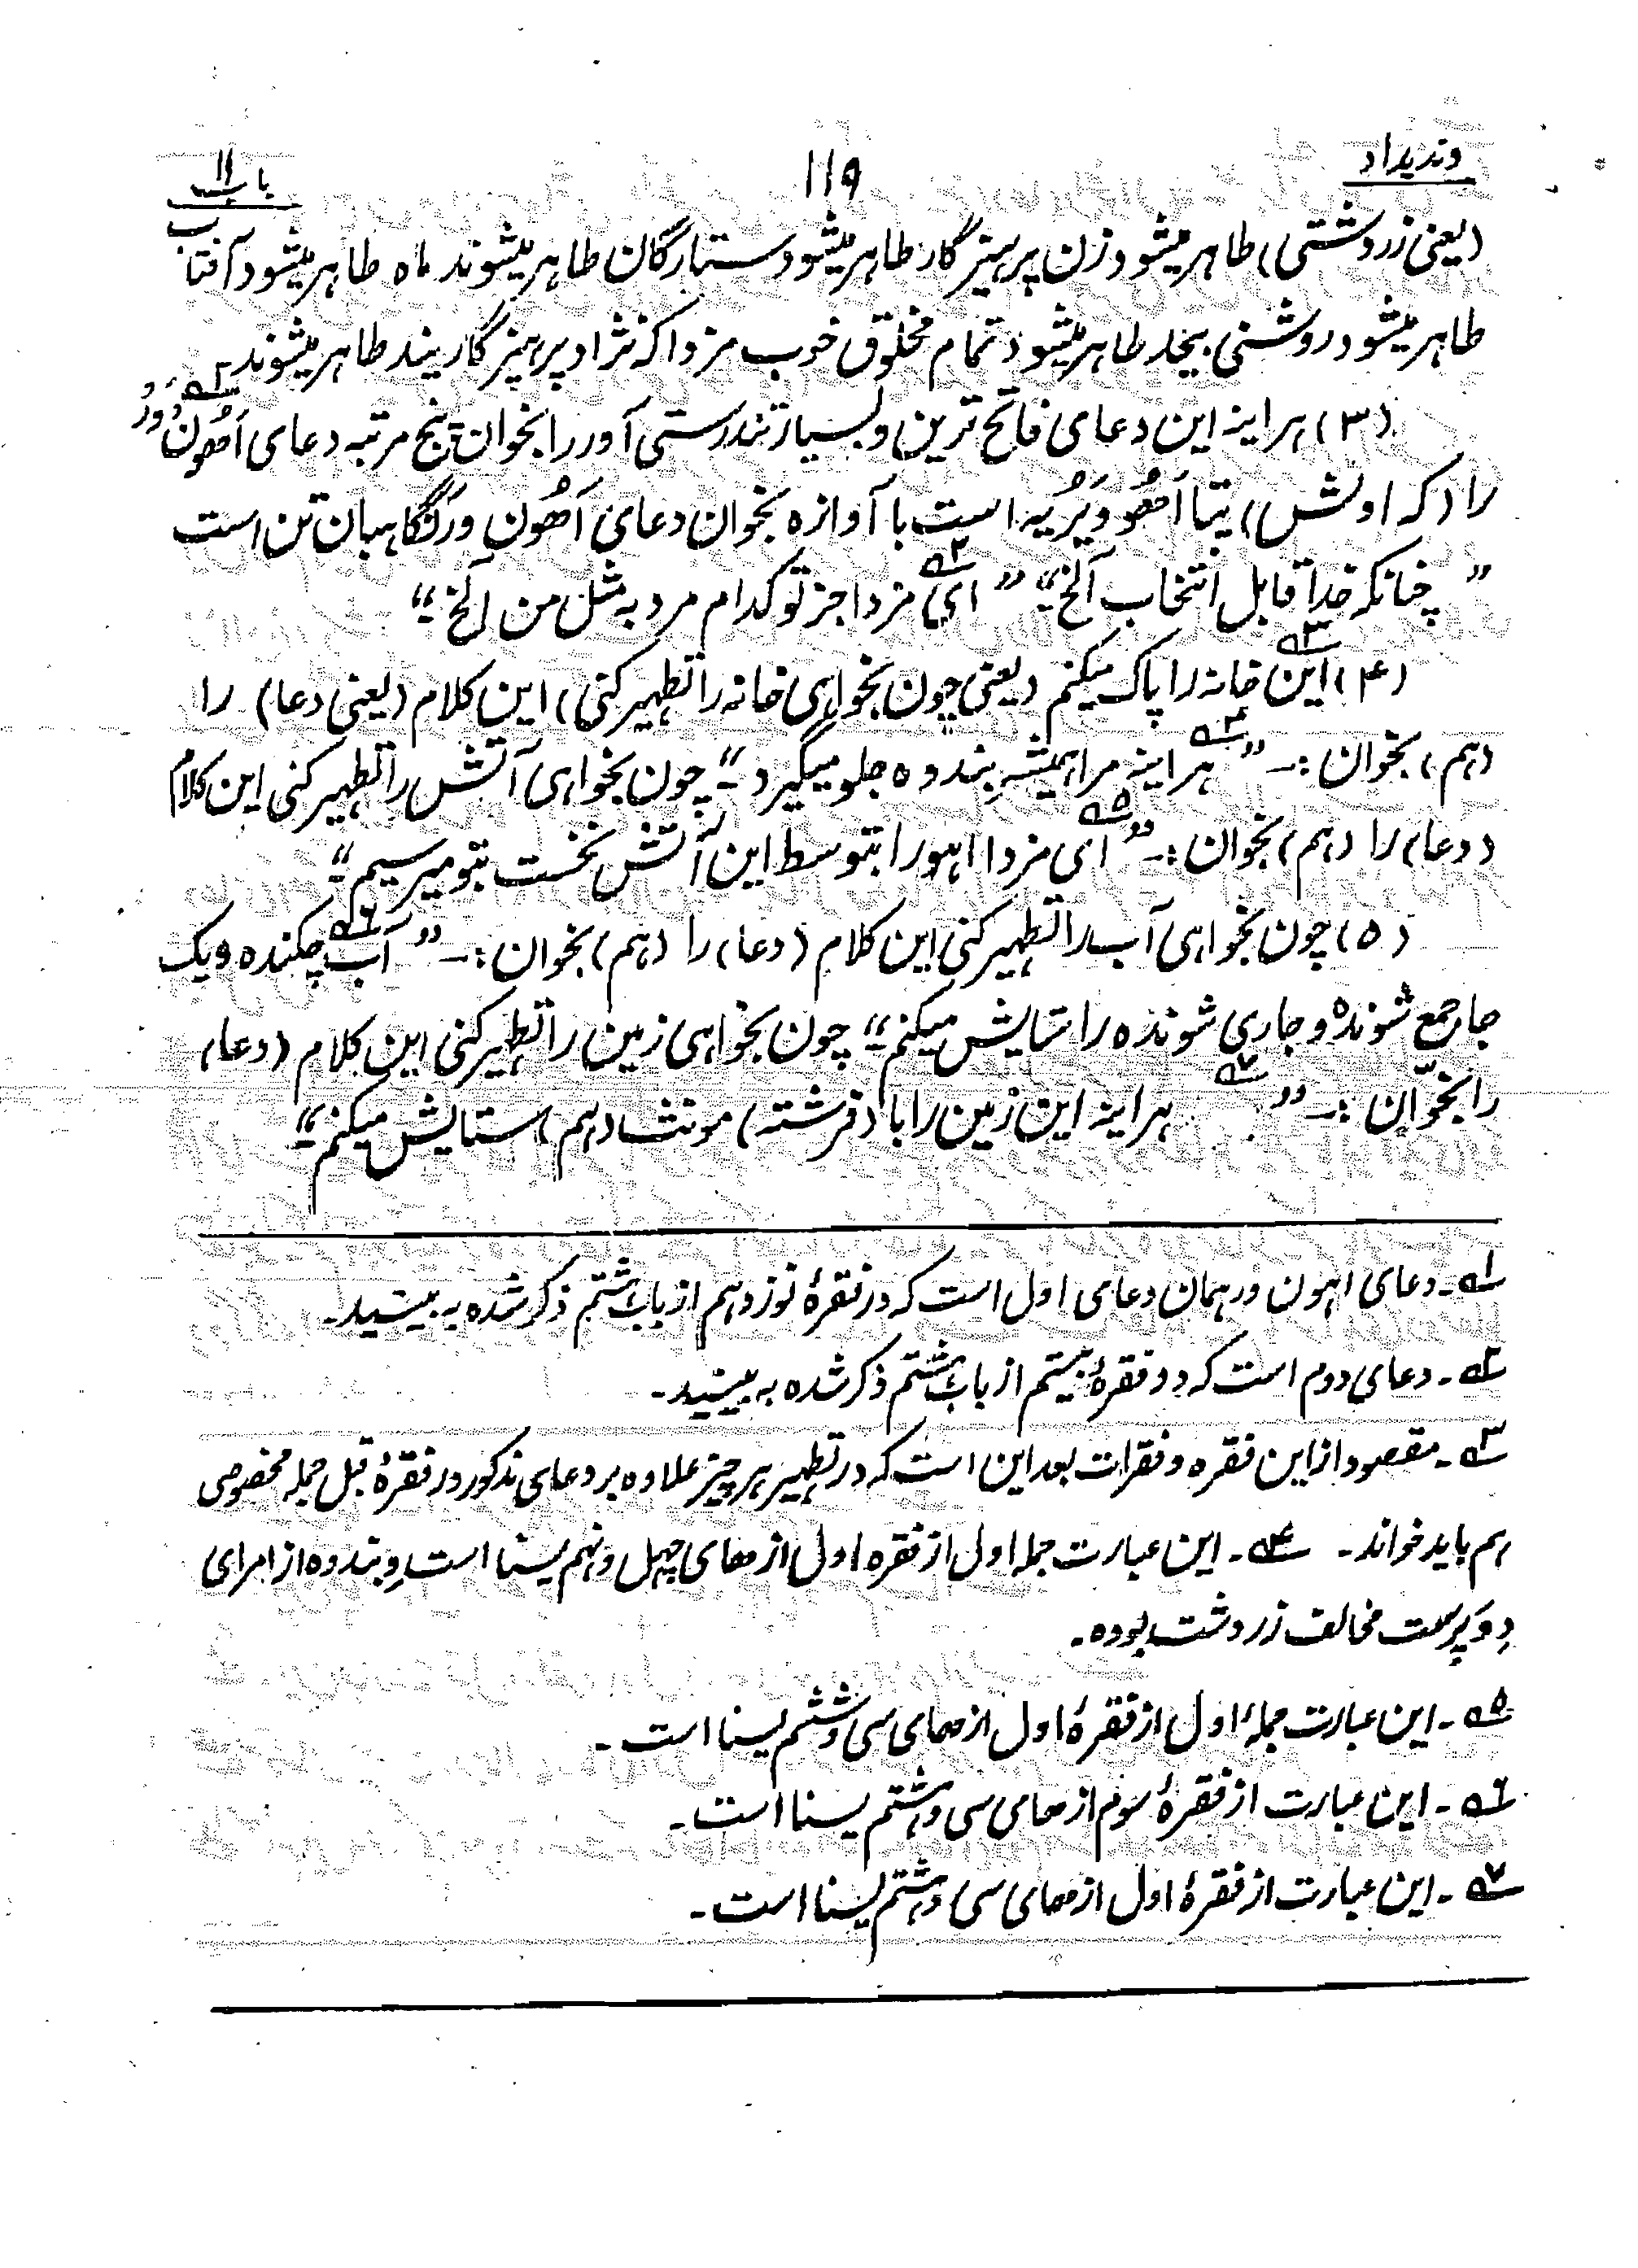 وندیداد ۱۱۹ باب ۱۱
(یعنی زردشتی) طاهر میشود زن پرهیزگار طاهر میشود ستارگان طاهر میشوند ماه طاهر میشود آفتاب
طاهر میشود روشنی بیحد طاهر میشود تمام مخلوق خوب مزدا که نژاد پرهیزگاریند طاهر میشوند۔
(۳) هر اینه این دعای فاتح ترین و بسیار تندرستی آور را بخوان پنج مرتبه دعای اَهُونَ وَرَ ؎۱
را (که اولش) یتا اَهُو وَیرُیه است با آوازه بخوان دعای اَهُونِ وَر نگاهبان تن است
” چنانکه خدا قابل انتخاب الخ“ ” ؎۲ ای مزدا جز تو کدام مرد به مثل من الخ“
(۴) ؎۳ این خانه را پاک میکنم (یعنی چون بخواهی خانه را تطهیر کنی) این کلام (یعنی دعا) را
(هم) بخوان :۔ ” ؎۴ هر اینه مرا همیشه بِندوه جلو میگیرد“ چون بخواهی آتش را تطهیر کنی این کلام
(دعا) را (هم) بخوان :۔ ” ؎۵ ای مزدا اهورا بتوسط این آتش نخست بتو میرسیم“
(۵) چون بخواهی آب را تطهیر کنی این کلام (دعا) را (هم) بخوان :۔ ” ؎۶ آب چکنده و یک
جا جمع شونده و جاری شونده را ستایش میکنم“ چون بخواهی زمین را تطهیر کنی این کلام (دعا)
را بخوان :۔ ” ؎۷ هر اینه این زمین را با (فرشته) مونث (هم) ستایش میکنم“
؎۱۔ دعای اهون ور همان دعای اول است که در فقرهٔ نوزدهم از باب هشتم ذکر شده به بینید۔
؎۲۔ دعای دوم است که در فقرهٔ بیستم از باب هشتم ذکر شده به بینید۔
؎۳۔ مقصود از این فقره و فقرات بعد این است که در تطهیر هر چیز علاوه بر دعای مذکور در فقرهٔ قبل جمله مخصوصی
هم باید خواند۔ ؎۴۔ این عبارت جمله اول از فقره اول از هٰای چهل و نهم یسنا است وبِندوه از امرای
دِوَپرست مخالف زردشت بوده۔
؎۵۔ این عبارت جملهٔ اول از فقرهٔ اول از هٰای سی و ششم یسنا است۔
؎۶۔ این عبارت از فقرهٔ سوم از هٰای سی و هشتم یسنا است۔
؎۷۔ این عبارت از فقرهٔ اول از هٰای سی و هشتم یسنا است۔